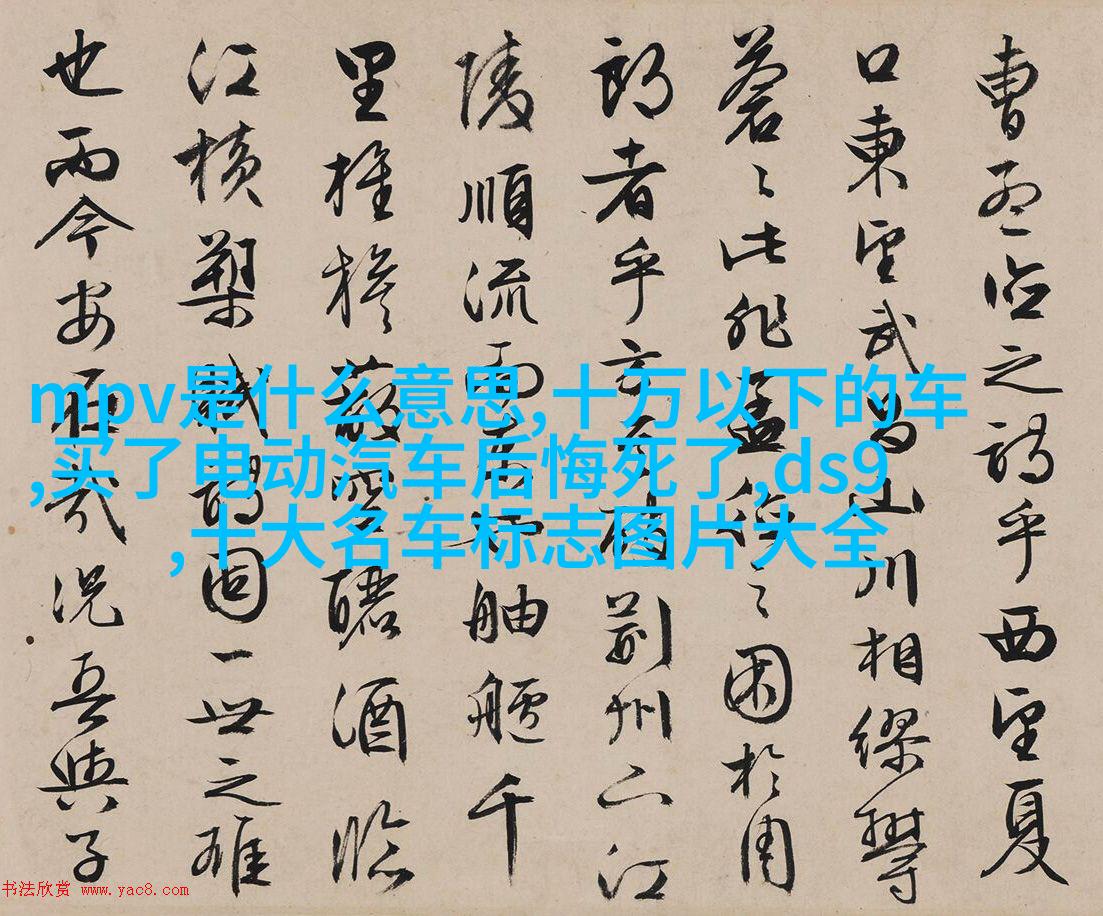 曹孟德之詩乎西望夏
口東望武昌山川相繆鬱
蒼〻此非孟德之困於周
郎者乎方其破荊州下江
陵順流而東也舳艫千
里旌旗蔽空釃酒臨
江橫槊賦詩固一世之雄
也而今安在哉況吾與子
mpv是什么意思,十万以下的车
,买了电动汽车后悔死了,ds9
,十大名车标志图片大全
书法欣赏 www.yac8.com